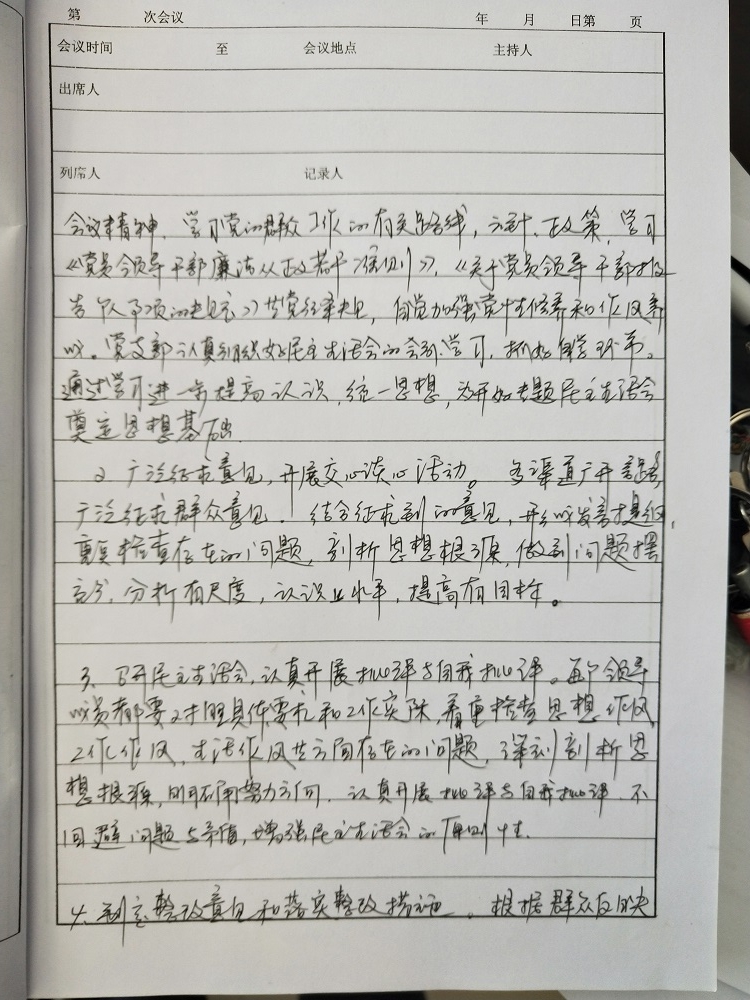 第 次会议 年 月 日第 页
会议时间 至 会议地点 主持人
出席人
列席人 记录人
会议精神、学习党的群众工作的有关路线，方针、政策，学习
《党员领导干部廉洁从政若干准则》，《关于党员领导干部报
告个人事项的规定》等党纪条规，自觉加强党性修养和作风养
成。党支部认真组织好民主生活会的会前学习，抓好自学环节。
通过学习进一步提高认识，统一思想，为开好专题民主生活会
奠定思想基础
2 广泛征求意见，开展交心谈心活动。多渠道广开言路，
广泛征求群众意见. 结合征求到的意见，形成发言提纲，
重点检查存在的问题，剖析思想根源，做到问题摆
充分，分析有尺度，认识上水平，提高有目标。
3、召开民主生活会，认真开展批评与自我批评。每个领导
成员都要对照具体要求和工作实际，着重检查思想作风
工作作风，生活作风等方面存在的问题，深刻剖析思
想根源，明确努力方向. 认真开展批评与自我批评. 不
回避问题与矛盾，增强民主生活会的原则性.
4. 制定整改意见和落实整改措施。根据群众反映